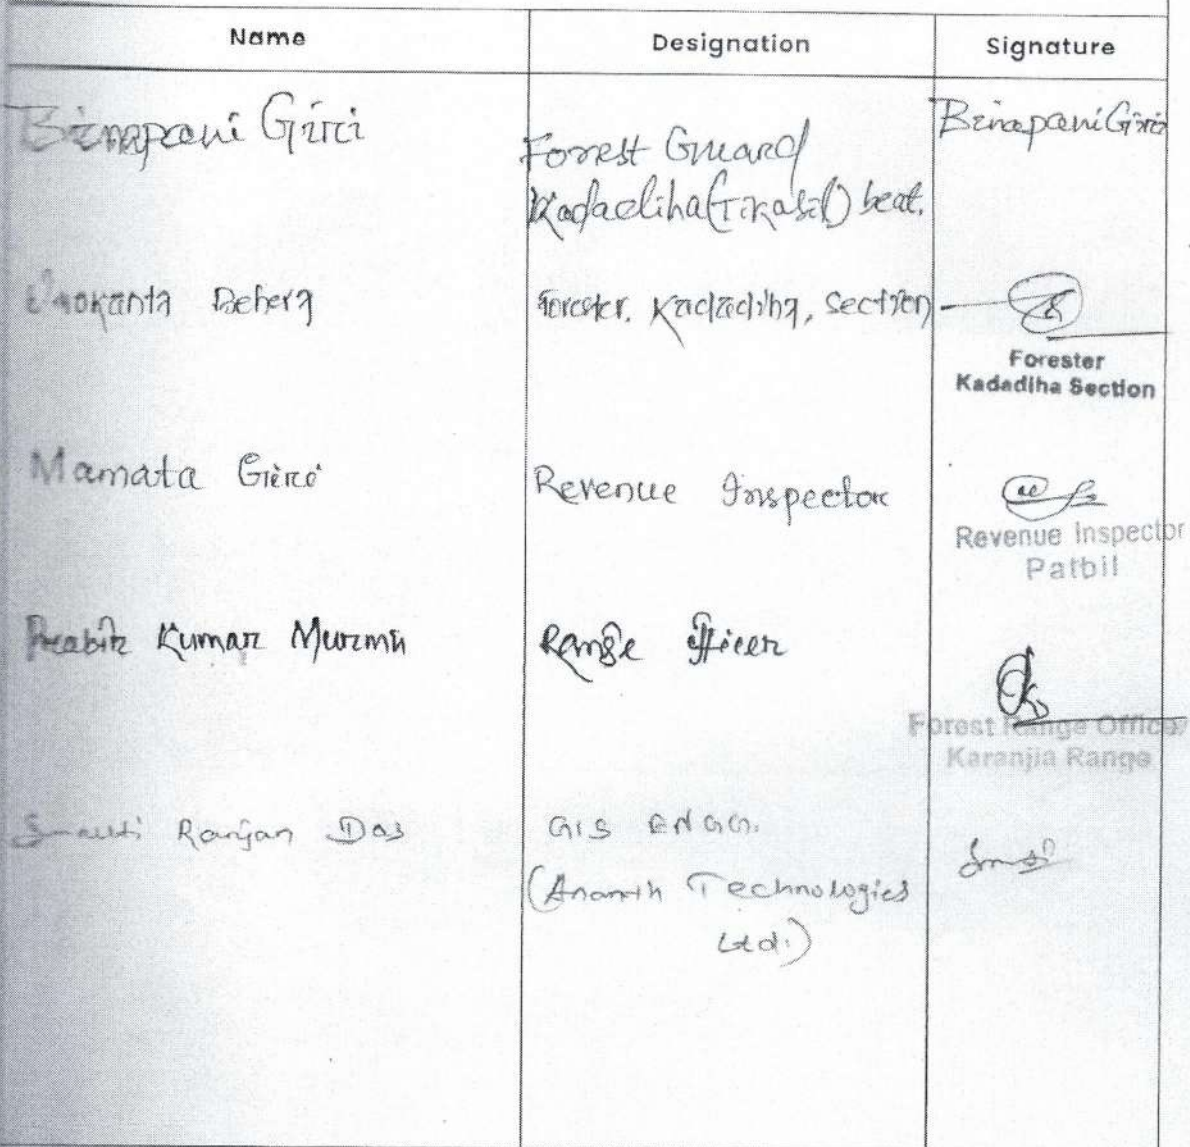 Name Designation Signature
Binapani Giri
Forest Guard
Kadadiha (Tikasil) beat.
Binapani Giri
Behera
Forester. Kadadiha, Section
Forester
Kadadiha Section
Mamata Giri
Revenue Inspector
Revenue Inspector
Patbil
Prabir Kumar Murmu
Range Officer
Forest Range Officer
Karanjia Range
Ranjan Das
GIS ENGG.
(Ananth Technologies
Ltd.)